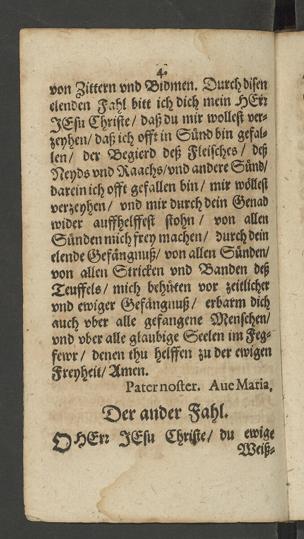 4.
von Zittern vnd Bidmen. Durch disen
elenden Fahl bitt ich dich mein HErr
JEsu Christe/ daß du mir wollest ver-
zeyhen/ daß ich offt in Sünd bin gefal-
len/ der Begierd deß Fleisches/ deß
Neyds vnd Raachs/ vnd andere Sünd/
darein ich offt gefallen bin/ mir wöllest
verzeyhen/ vnd mir durch dein Genad
wider auffhelffest stohn/ von allen
Sünden mich frey machen/ durch dein
elende Gefängnuß/ von allen Sünden/
von allen Stricken vnd Banden deß
Teuffels/ mich behüten vor zeitlicher
vnd ewiger Gefängnuß/ erbarm dich
auch vber alle gefangene Menschen/
vnd vber alle glaubige Seelen im Feg-
fewr/ denen thu helffen zu der ewigen
Freyheit/ Amen.
Pater noster. Aue Maria.
Der ander Fahl.
O HErr JEsu Christe/ du ewige
Weiß-